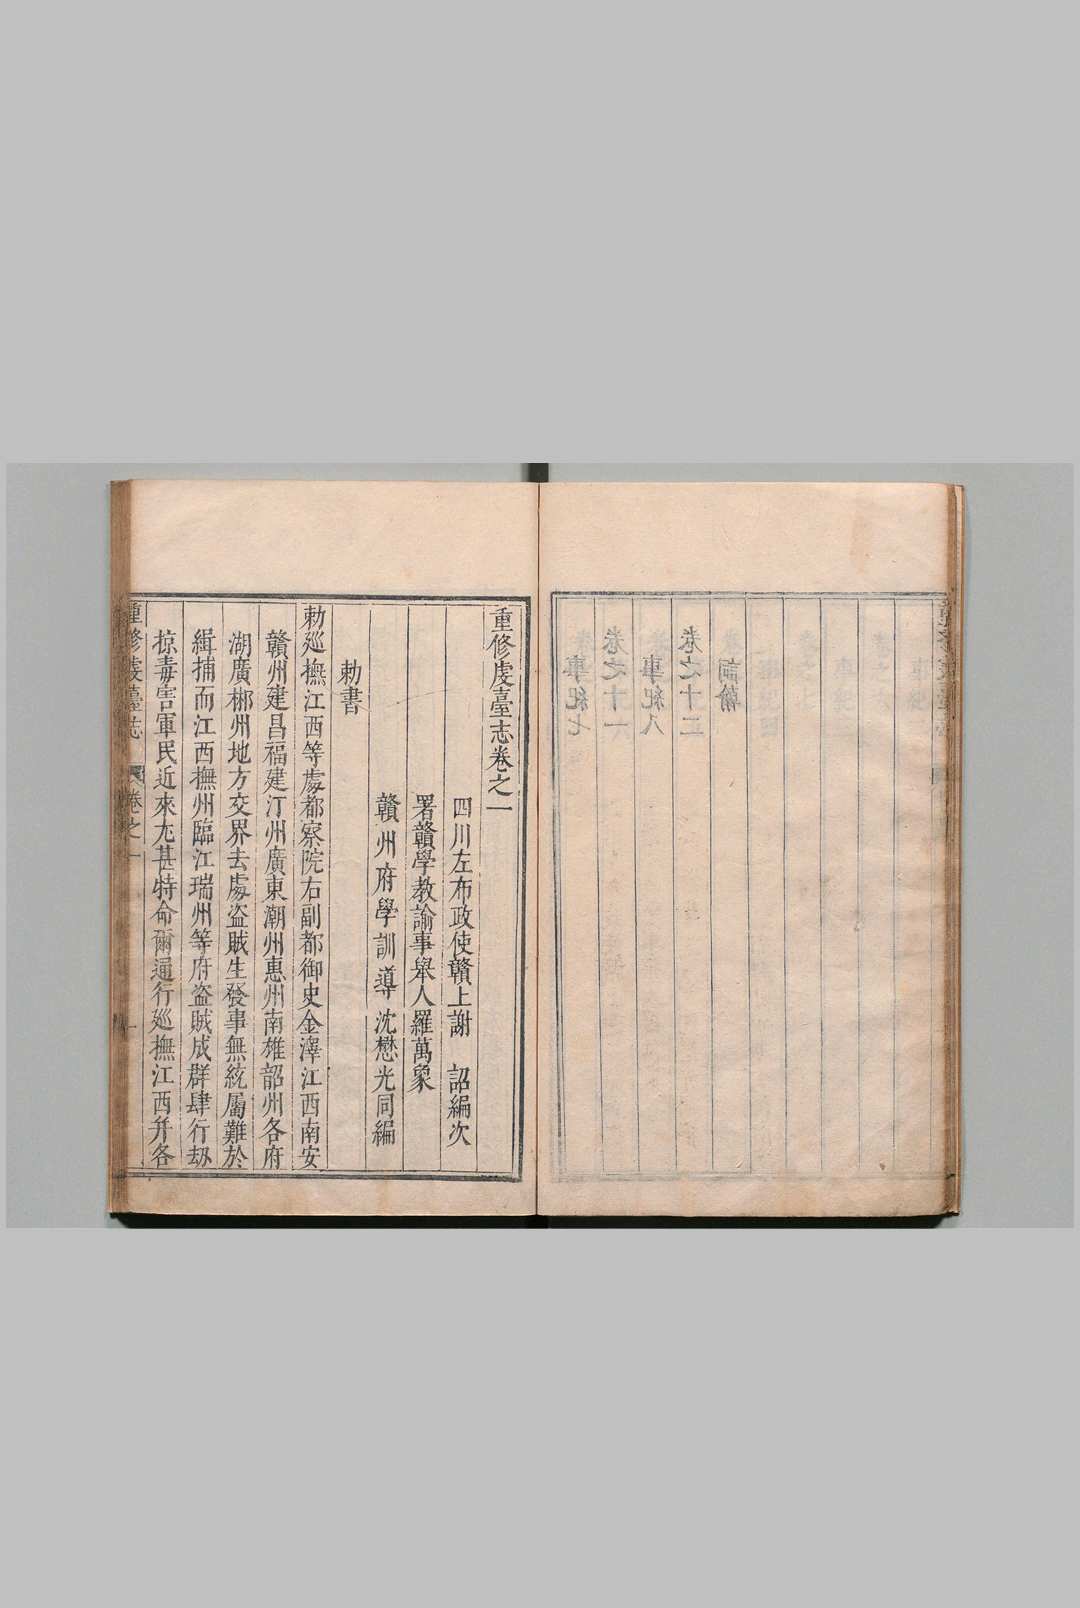 重修虔臺志卷之一
四川左布政使贛上謝　詔編次
署贛學教諭事舉人羅萬象
贛州府學訓導沈懋光同編
勅書
勅廵撫江西等處都察院右副都御史金澤江西南安
贛州建昌福建汀州廣東潮州惠州南雄韶州各府
湖廣郴州地方交界去處盜賊生發事無統屬難於
緝捕而江西撫州臨江瑞州等府盜賊成群肆行刼
掠毒害軍民近來尤甚特命爾通行廵撫江西幷各
重修虔臺志　卷之一　一